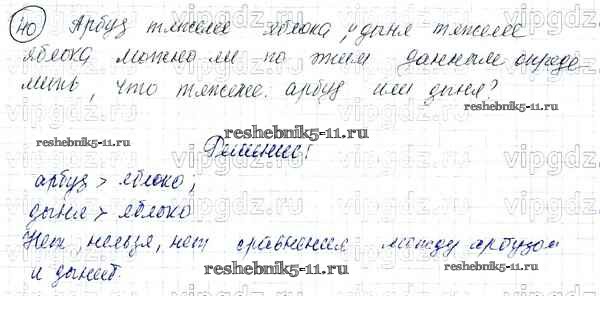 40 Арбуз тяжелее яблока, и дыня тяжелее
яблока можно ли по этим данным опреде
лить, что тяжелее: арбуз или дыня?
reshebnik5-11.ru reshebnik5-11.ru
Решение!
арбуз > яблоко,
дыня > яблоко
Нет, нельзя, нет сравнения между арбузом
и дыней.
reshebnik5-11.ru reshebnik5-11.ru